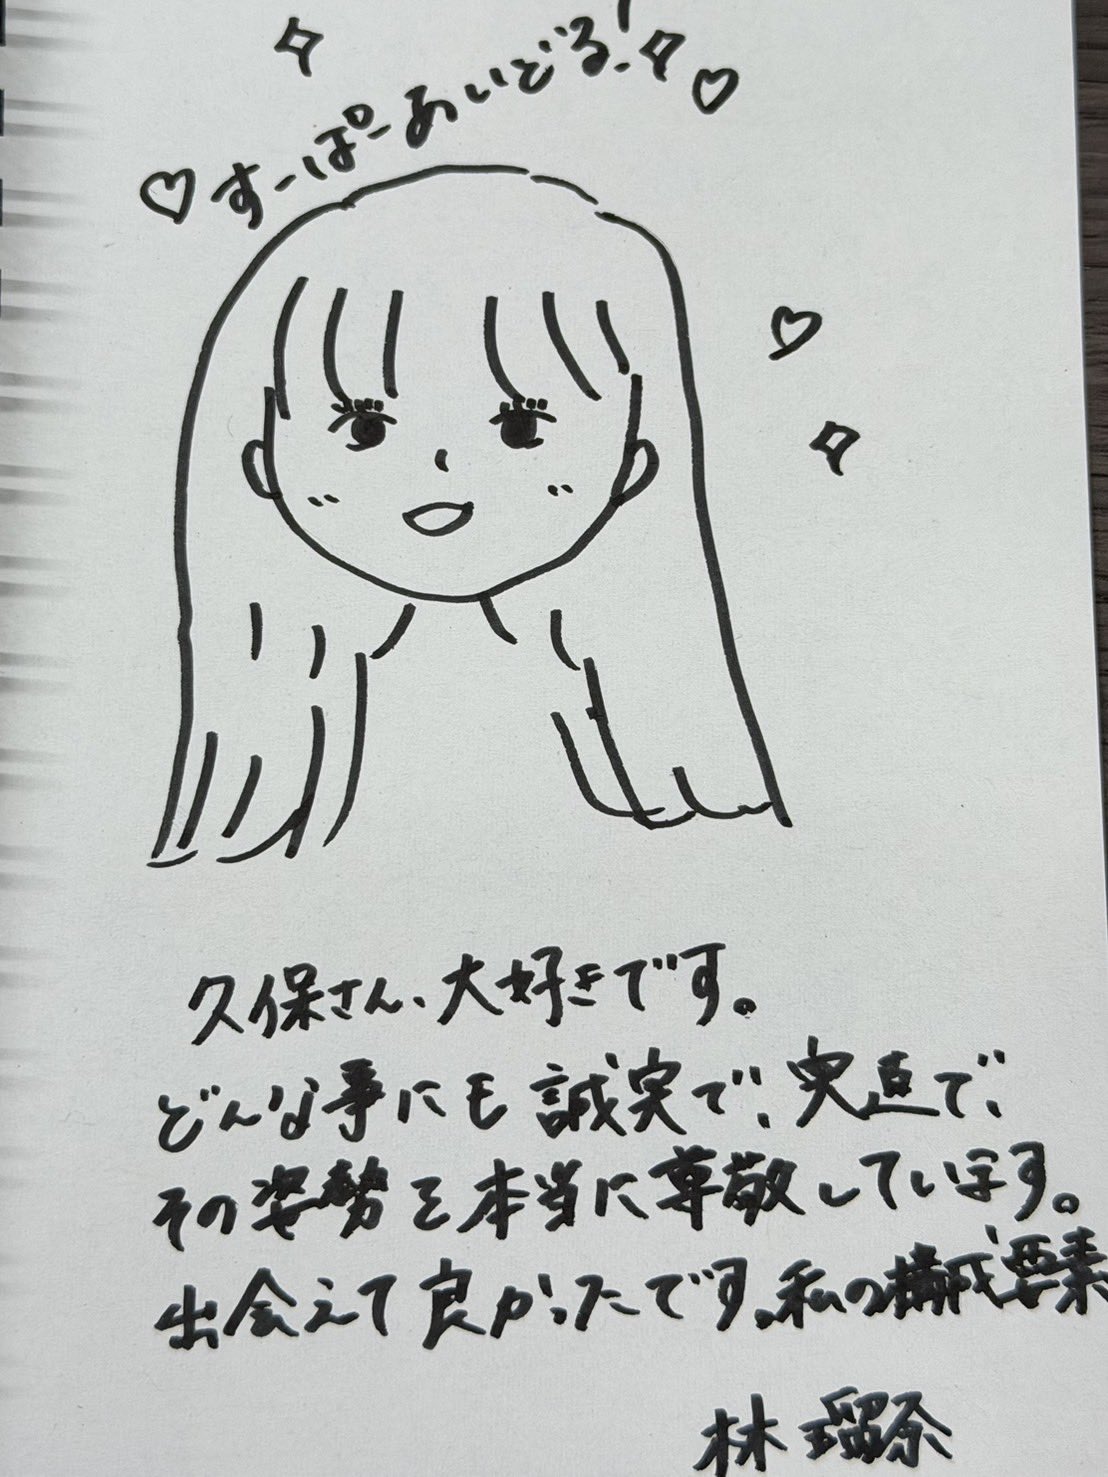 すーぱーあいどる!
久保さん、大好きです。
どんな事にも誠実で、実直で、
その姿勢を本当に尊敬しています。
出会えて良かったです。私の構成要素
林瑠奈